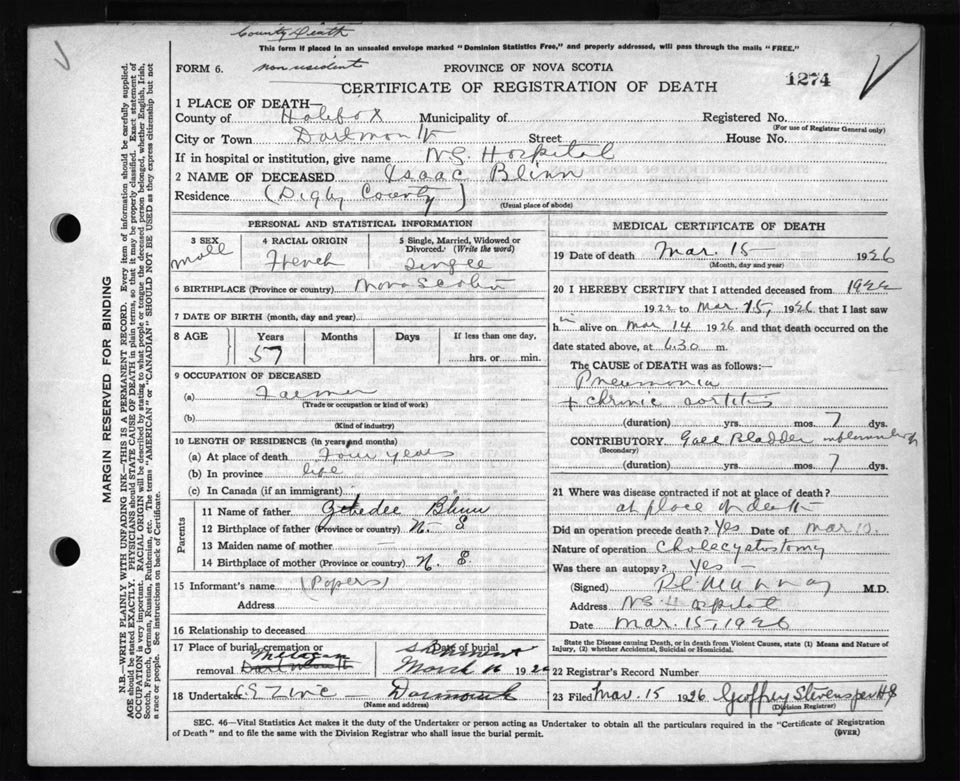 County Death
This form if placed in an unsealed envelope marked "Dominion Statistics Free," and properly addressed, will pass through the mails "FREE."
FORM 6.
non resident
PROVINCE OF NOVA SCOTIA
1274
CERTIFICATE OF REGISTRATION OF DEATH
1 PLACE OF DEATH—
County of Halifax Municipality of Registered No.
(For use of Registrar General only)
City or Town Dartmouth Street House No.
If in hospital or institution, give name N.S. Hospital
2 NAME OF DECEASED Isaac Blinn
Residence (Digby County)
(Usual place of abode)
PERSONAL AND STATISTICAL INFORMATION
3 SEX
male
4 RACIAL ORIGIN
French
5 Single, Married, Widowed or Divorced. (Write the word)
Single
6 BIRTHPLACE (Province or country) Nova Scotia
7 DATE OF BIRTH (month, day and year)
8 AGE Years Months Days If less than one day,
57 hrs. or min.
9 OCCUPATION OF DECEASED
(a) Farmer
(Trade or occupation or kind of work)
(b)
(Kind of industry)
10 LENGTH OF RESIDENCE (in years and months)
(a) At place of death Four years
(b) In province life
(c) In Canada (if an immigrant)
Parents
11 Name of father Zebedee Blinn
12 Birthplace of father (Province or country) N. S
13 Maiden name of mother —
14 Birthplace of mother (Province or country) N. S.
15 Informant's name (Papers)
Address
16 Relationship to deceased
17 Place of burial, cremation or Date of burial
removal Dartmouth March 16 1926
18 Undertaker
(Name and address)
MEDICAL CERTIFICATE OF DEATH
19 Date of death Mar. 15 1926
(Month, day and year)
20 I HEREBY CERTIFY that I attended deceased from 1922
1922 to Mar. 15, 1926 that I last saw
him alive on Mar 14 1926 and that death occurred on the
date stated above, at 6.30 m.
The CAUSE of DEATH was as follows:—
Pneumonia
+ chronic aortitis
(duration) yrs. mos. 7 dys.
CONTRIBUTORY Gall Bladder inflammation
(Secondary)
(duration) yrs. mos. 7 dys.
21 Where was disease contracted if not at place of death?
at place of death
Did an operation precede death? Yes Date of Mar 12.
Nature of operation Cholecystostomy
Was there an autopsy? Yes
(Signed) M.D.
Address N.S. Hospital
Date Mar. 15, 1926
State the Disease causing Death, or in death from Violent Causes, state (1) Means and Nature of Injury, (2) whether Accidental, Suicidal or Homicidal.
22 Registrar's Record Number
23 Filed Mar. 15 1926 Geoffrey Stevens
(Division Registrar)
SEC. 46—Vital Statistics Act makes it the duty of the Undertaker or person acting as Undertaker to obtain all the particulars required in the "Certificate of Registration
of Death" and to file the same with the Division Registrar who shall issue the burial permit.
(OVER)
MARGIN RESERVED FOR BINDING
N.B.—WRITE PLAINLY WITH UNFADING INK—THIS IS A PERMANENT RECORD. Every item of information should be carefully supplied.
AGE should be stated EXACTLY. PHYSICIANS should STATE CAUSE OF DEATH in plain terms, so that it may be properly classified. Exact statement of
OCCUPATION is very important. RACIAL ORIGIN will be described by stating to what people or tongue the deceased person belonged, whether English, Irish,
Scotch, French, German, Russian, Ruthenian, etc. The terms "AMERICAN" or "CANADIAN" SHOULD NOT BE USED as they express citizenship but not
a race or people. See instructions on back of Certificate.